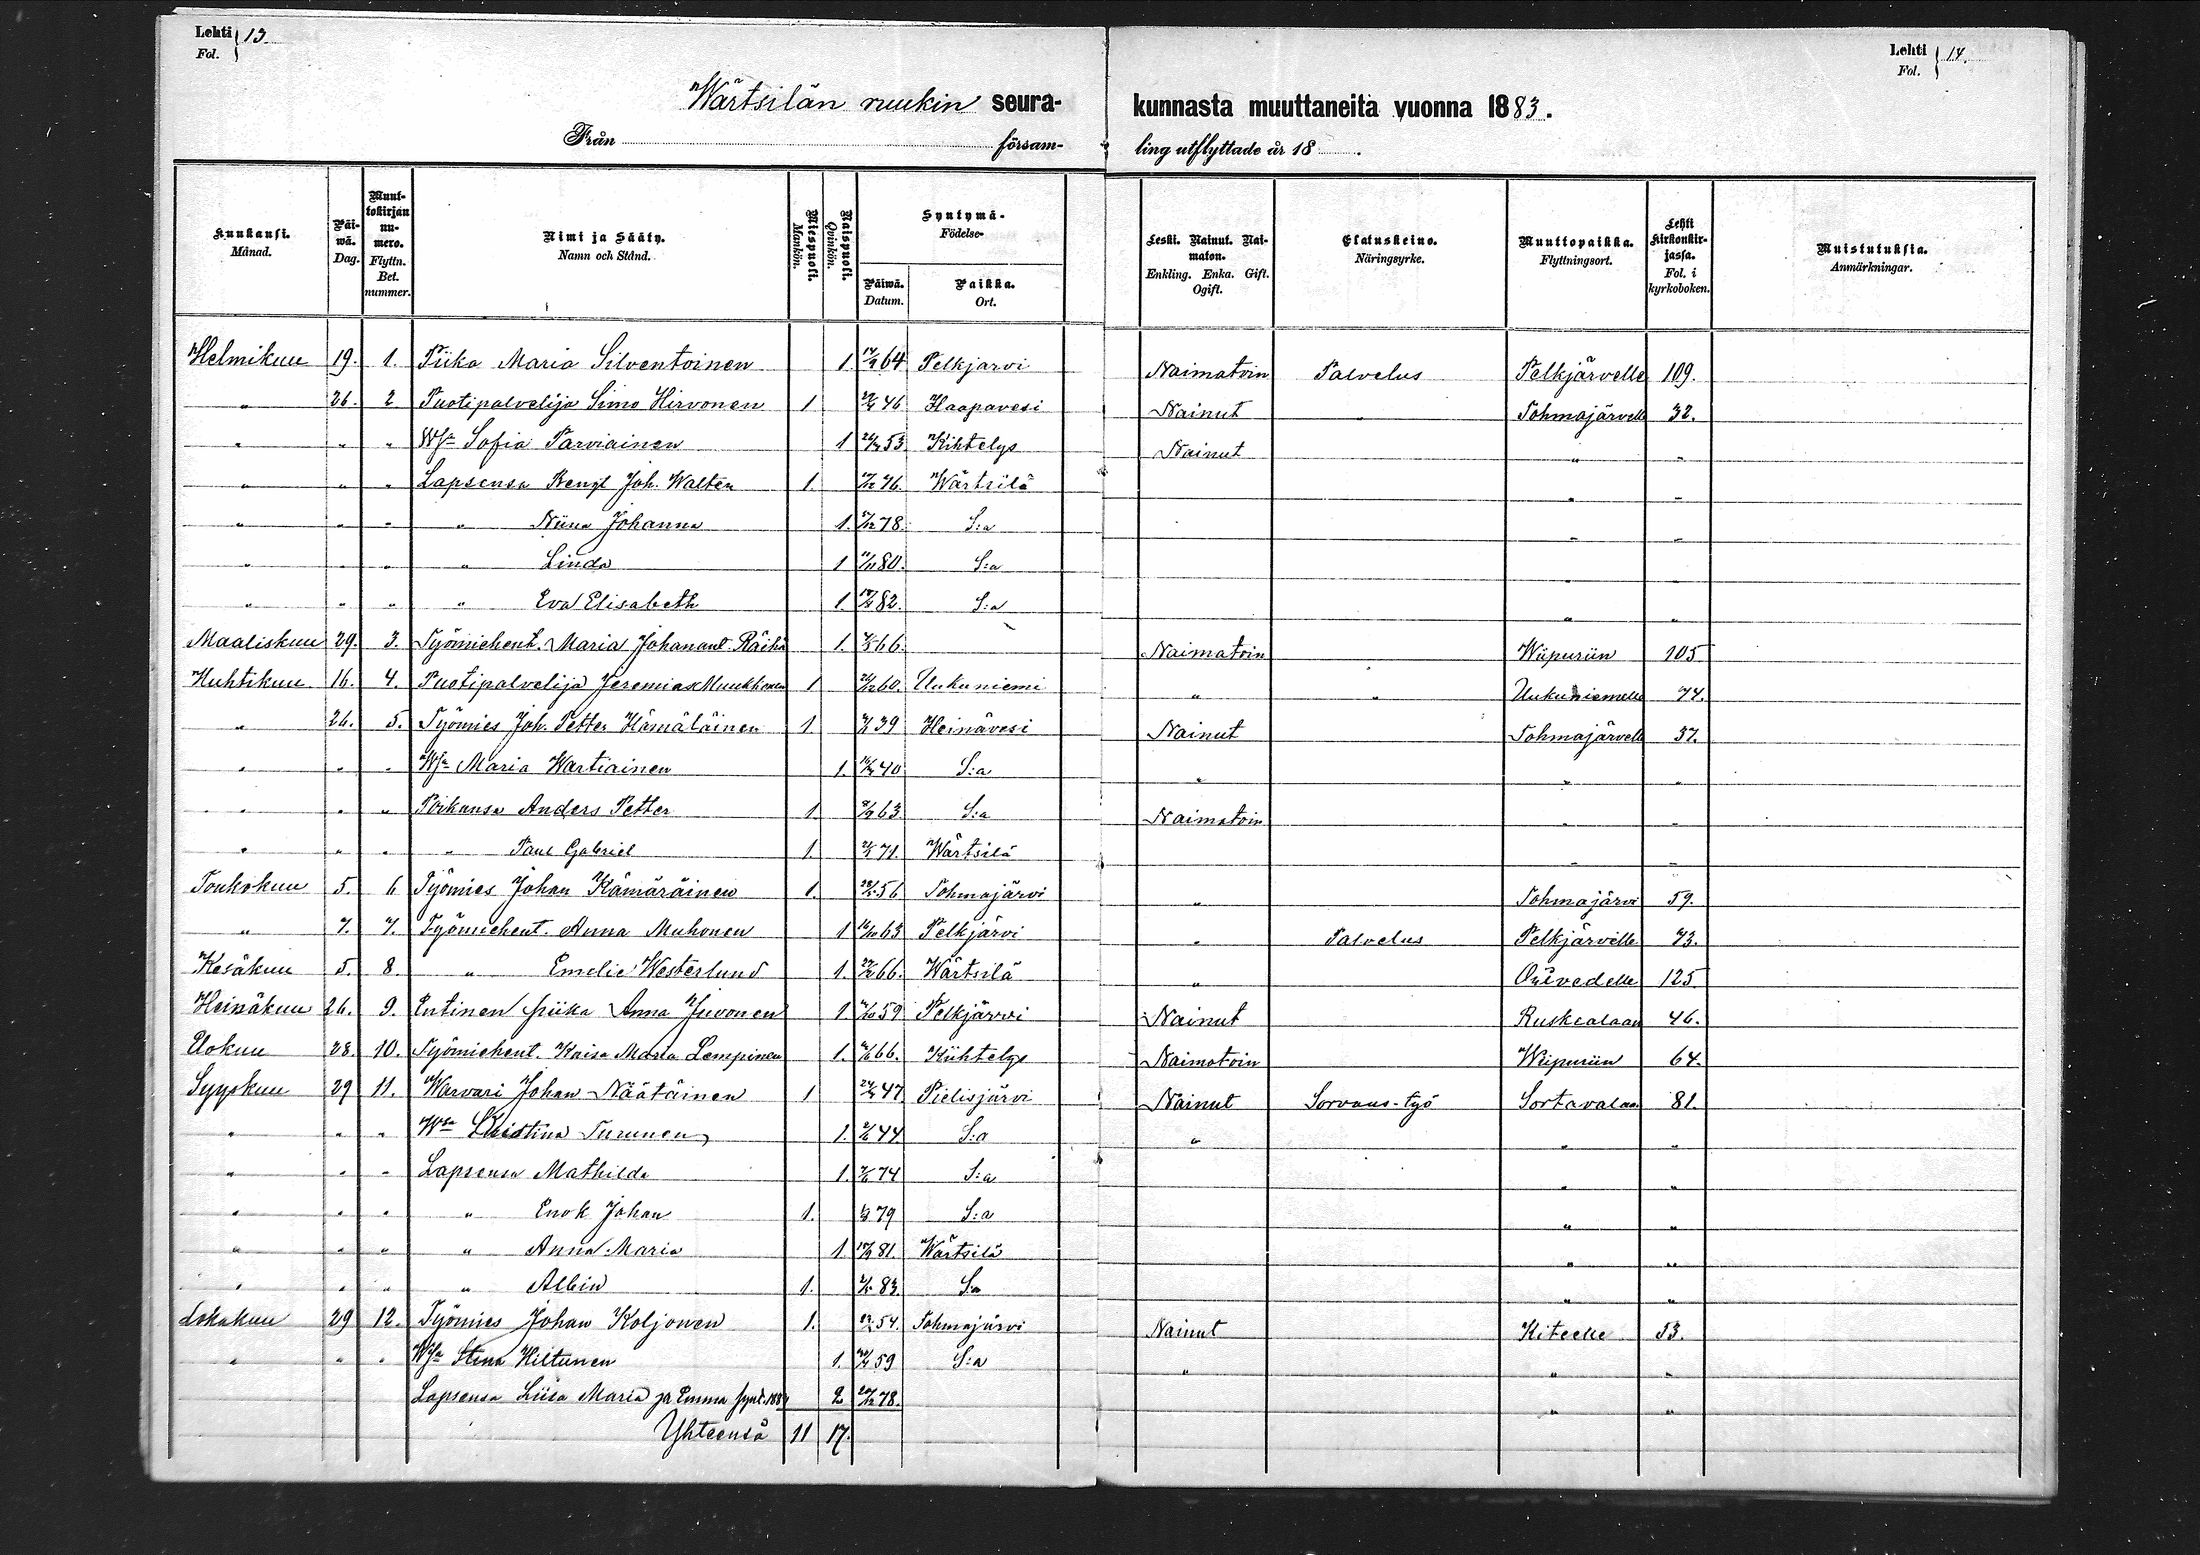 Lehti 13.
Fol.
Lehti 14.
Fol.
Wärtsilän ruukin seura- kunnasta muuttaneita vuonna 1883.
Från församling utflyttade år 18 .
Kuukausi. Månad. | Päiwä. Dag. | Muuttokirjan numero. Flyttn. Bet. nummer. | Nimi ja Sääty. Namn och Stånd. | Miespuoli. Mankön. | Naispuoli. Quinkön. | Syntymä- Födelse- Päiwä. Datum. | Paikka. Ort. | Leski. Nainut. Naimaton. Enkling. Enka. Gift. Ogift. | Elatuskeino. Näringsyrke. | Muuttopaikka. Flyttningsort. | Lehti kirkonkirjassa. Fol. i kyrkoboken. | Muistutuksia. Anmärkningar.
Helmikuu 19. 1. Piika Maria Silventoinen 1. 64 Pelkjärvi Naimatoin Palvelus Pelkjärvelle 109.
" 26. 2. Puotipalvelija Simo Hirvonen 1 46 Haapavesi Nainut " Tohmajärvelle 32.
" " " Wsa Sofia Parviainen 1 53 Kihtelys Nainut " "
" " " Lapsensa Bengt Joh. Walter 1. 76. Wärtsilä " "
" " " " Niina Johanna 1. 78. S:a " "
" " " " Linda 1 80. S:a " "
" " " " Eva Elisabeth 1. 82. S:a " "
Maaliskuu 29. 3. Työmiehent. Maria Johanant. Räihä 1. 66. Naimatoin Wiipuriin 105.
Huhtikuu 16. 4. Puotipalvelija Jeremias Muukkonen 1 60. Uukuniemi " " Uukuniemelle 74.
" 26. 5. Työmies Joh. Petter Hämäläinen 1. 39 Heinävesi Nainut Tohmajärvelle 37.
" " " Wsa Maria Wartiainen 1. 40 S:a " " "
" " " Poikansa Anders Petter 1. 63 S:a Naimatoin " "
" " " " Paul Gabriel 1. 71. Wärtsilä " "
Toukokuu 5. 6 Työmies Johan Kämäräinen 1. 56 Tohmajärvi " Tohmajärvi 59.
" 7. 7. Työmiehent. Anna Muhonen 1 63 Pelkjärvi " Palvelus Pelkjärville 73.
Kesäkuu 5. 8. " Emelie Westerlund 1. 66. Wärtsilä " 125.
Heinäkuu 26. 9. Entinen piika Anna Juvonen 1. 59 Pelkjärvi Nainut Ruskealaan 46.
Elokuu 28. 10. Työmiehent. Kaisa Maria Lempinen 1. 66. Kiihtelys Naimatoin Wiipuriin 64.
Syyskuu 29 11. Warvari Johan Näätäinen 1 47 Pielisjärvi Nainut Sorvaus-työ Sortavalaan 81.
" " " Wsa Kristina Turunen 1. 44 S:a " " "
" " " Lapsensa Mathilda 1. 74 S:a " "
" " " " Enok Johan 1. 79 S:a " "
" " " " Anna Maria 1. 81. Wärtsilä " "
" " " " Albin 1. 83. S:a " "
Lokakuu 29 12. Työmies Johan Koljonen 1. 54. Tohmajärvi Nainut Kiteelle 53.
" " " Wsa Stina Hiltunen 1. 59 S:a " " "
Lapsensa Liisa Maria ja Emma 2 78. " "
Yhteensä 11 17.